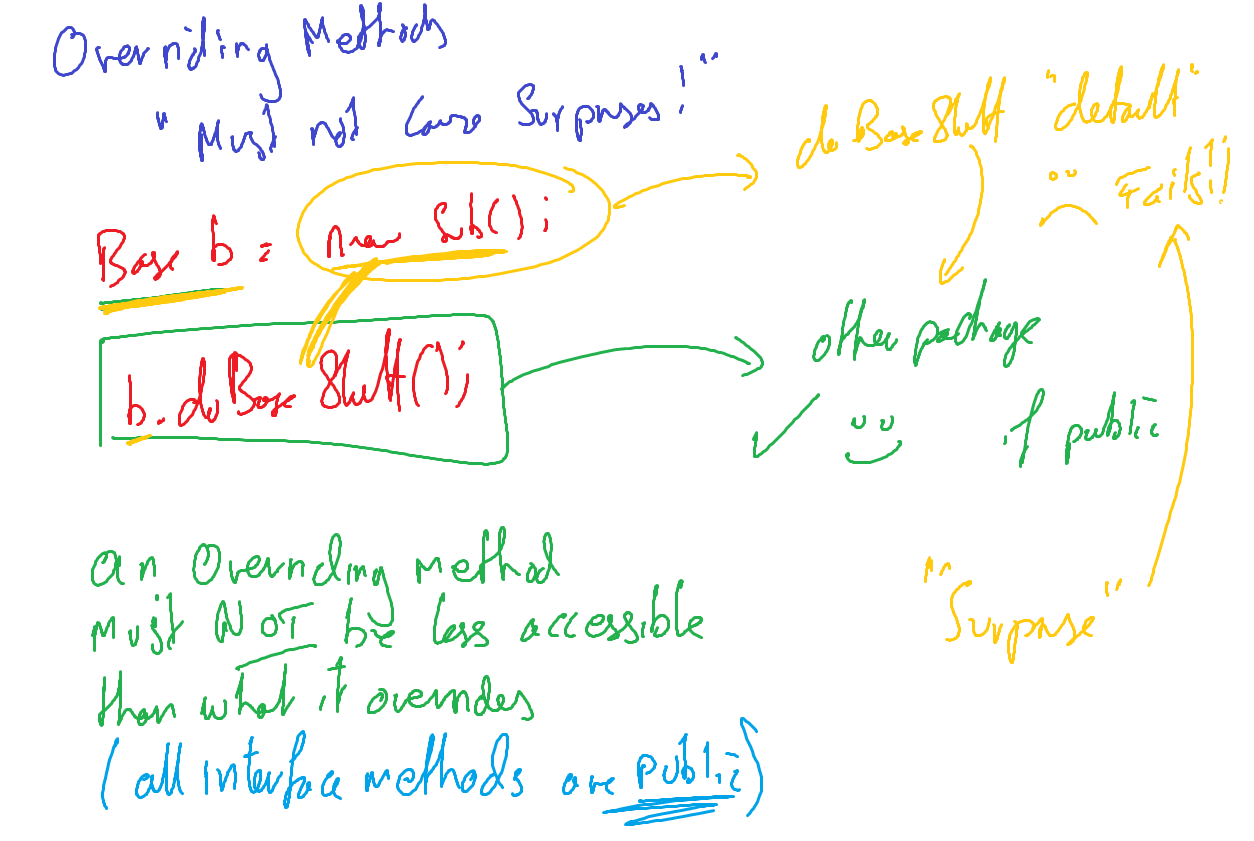 Overriding Methods
"Must not Cause Surprises!"
Base b = new Sub();
b.doBaseStuff();
doBaseStuff "default"
Fails!!
other package
if public
"Surprise"
an Overriding method
must NOT be less accessible
than what it overrides
(all interface methods are public)